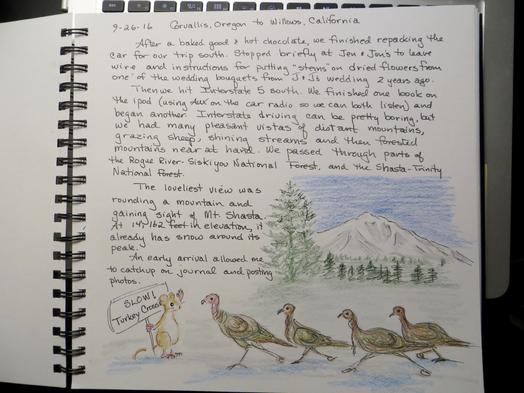 9-26-16 Corvallis, Oregon to Willows, California
After a baked good & hot chocolate, we finished repacking the
car for our trip south. Stopped briefly at Jen & Jon's to leave
wire and instructions for putting "stems" on dried flowers from
one of the wedding bouquets from J & J's wedding 2 years ago.
Then we hit Interstate 5 south. We finished one book on
the ipod (using aux on the car radio so we can both listen) and
began another. Interstate driving can be pretty boring, but
we had many pleasant vistas of distant mountains,
grazing sheep, shining streams and then forested
mountains near at hand. We passed through parts of
the Rogue River-Siskiyou National Forest, and the Shasta-Trinity
National Forest.
The loveliest view was
rounding a mountain and
gaining sight of Mt. Shasta.
At 14,162 feet in elevation, it
already has snow around its
peak.
An early arrival allowed me
to catchup on journal and posting
photos.
SLOW!
Turkey Crossing